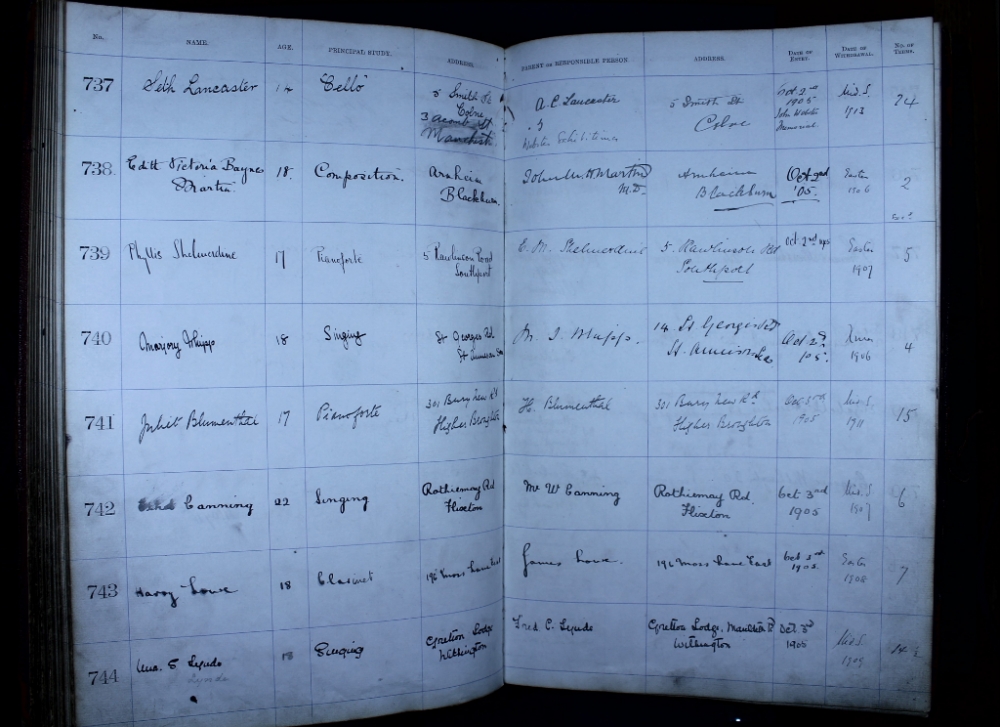 No. NAME. AGE. PRINCIPAL STUDY. ADDRESS. PARENT OR RESPONSIBLE PERSON. ADDRESS. DATE OF ENTRY. DATE OF WITHDRAWAL. NO. OF TERMS.
737 Seth Lancaster 14 Cello 5 Smith St A. E. Lancaster 5 Smith St Oct 2nd 1905 Mids. 1913 24
Colne Colne John Webster Memorial
3 Acomb St
Manchester
738 Edith Victoria Bayne 18 Composition. Arnheim John W. H. Martin Arnheim Oct 2nd Easter 2
S. Martin Blackburn. M.D. Blackburn '05. 1906
739 Phyllis Shelmerdine 17 Pianoforte 5 Rawlinson Road E. M. Shelmerdine 5. Rawlinson Rd Oct 2nd Easter 5
Southport Southport 1907
740 Marjory Whipp 18 Singing St Georges Rd 14 St Georges Rd Oct 2nd 4
St Annes on Sea St. Annes on Sea 05. 1906
741 Juliet Blumenthal 17 Pianoforte 301 Bury New Rd H. Blumenthal 301 Bury New Rd Oct 3rd Mids. 15
Higher Broughton Higher Broughton 1905 1911
742 Canning 22 Singing Rothiemay Rd Mr W Canning Rothiemay Rd Oct 3rd Mids. 6
Flixton Flixton 1905 1907
743 Harry Lowe 18 Clarinet 196 Moss Lane East James Lowe. 196 Moss Lane East Oct 3rd Easter 7
1905 1908
744 S Lynde 18 Singing Lodge Fred. C. Lynde Lodge, Oct. 3rd Mids.
Lynde Withington Withington 1905 1909